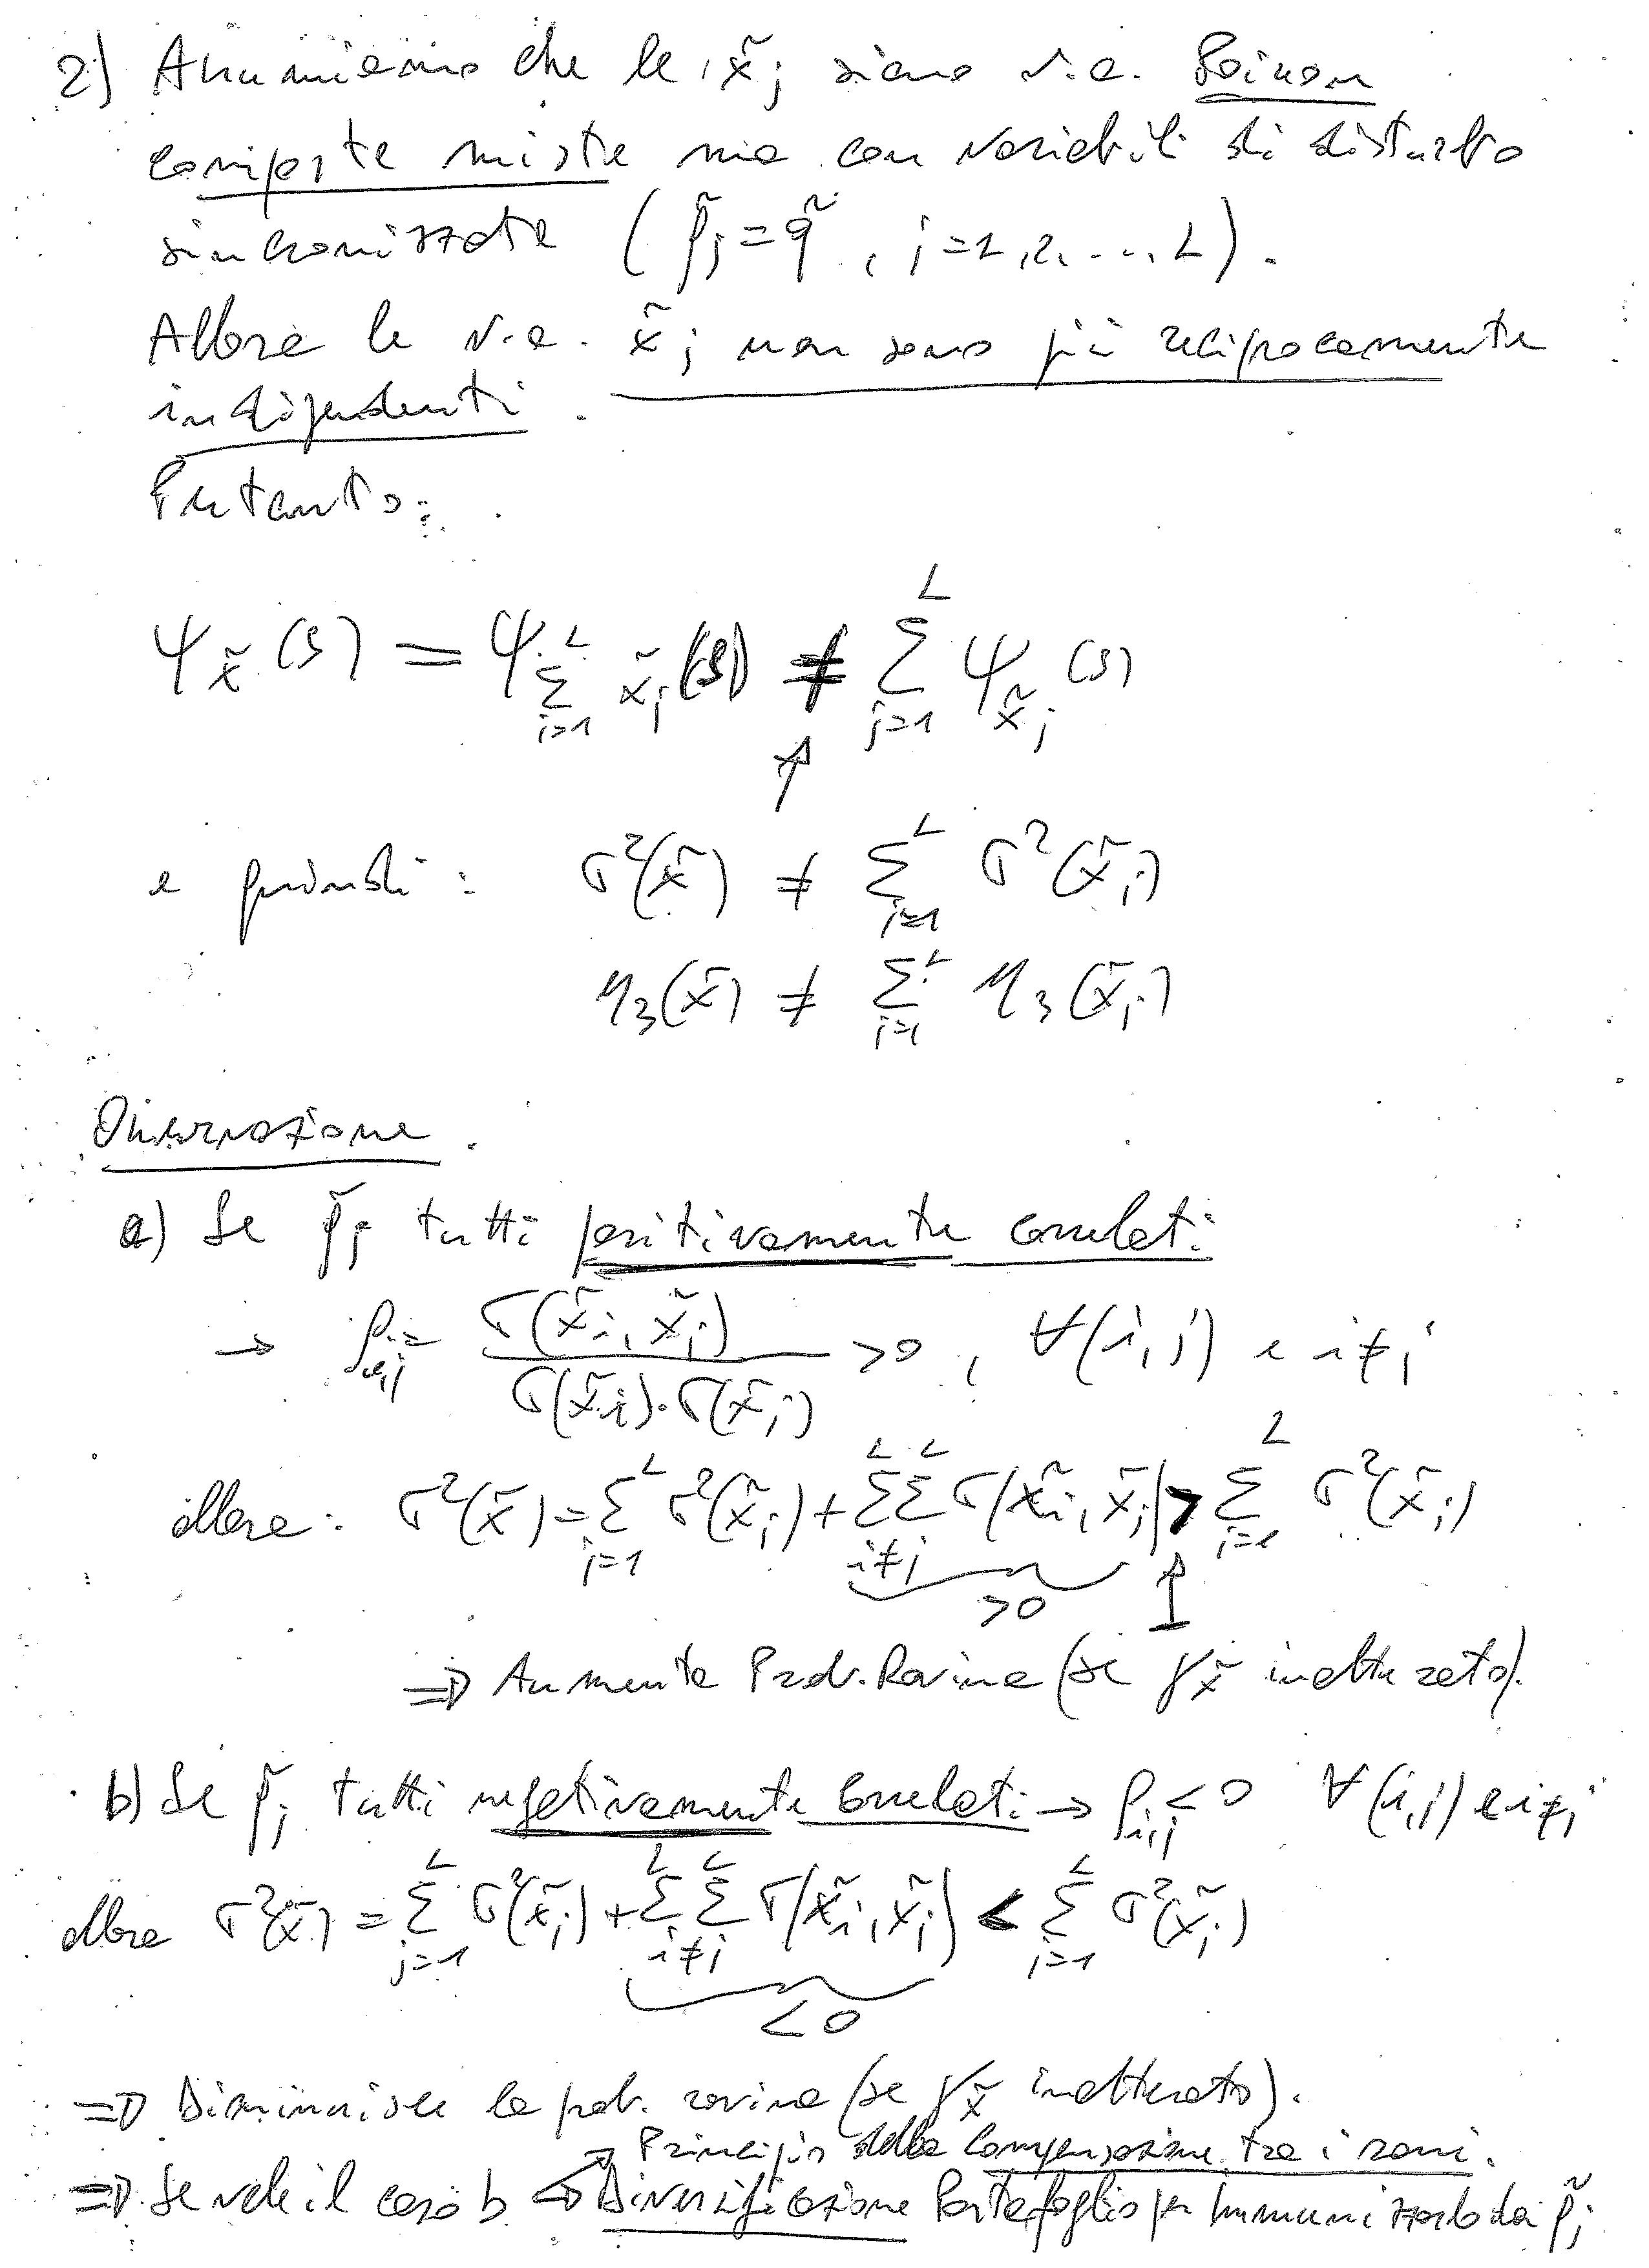 2) Assumiamo che le x̃j siano v.a. Poisson
composte miste ma con variabili di disturbo
sincronizzate (q̃j = q̃, j=1,2,...,L).
Allora le v.a. x̃j non sono più reciprocamente
indipendenti.
Pertanto:
ψx̃(s) = ψ∑(j=1..L) x̃j(s) ≠ ∑(j=1..L) ψx̃j(s)
↑
e quindi: σ²(x̃) ≠ ∑(j=1..L) σ²(x̃j)
μ3(x̃) ≠ ∑(j=1..L) μ3(x̃j)
Osservazione.
a) Se q̃j tutti positivamente correlati
→ ρi,j = σ(x̃i, x̃j) / σ(x̃i)·σ(x̃j) > 0, ∀(i,j) e i≠j
allora: σ²(x̃) = ∑(j=1..L) σ²(x̃j) + ∑∑(i≠j) σ(x̃i, x̃j) > ∑(j=1..L) σ²(x̃j)
>0 ↑
⇒ Aumenta Prob. Rovina (se γx̃ inalterato).
b) Se q̃j tutti negativamente correlati → ρi,j < 0 ∀(i,j) e i≠j
allora σ²(x̃) = ∑(j=1..L) σ²(x̃j) + ∑∑(i≠j) σ(x̃i, x̃j) < ∑(j=1..L) σ²(x̃j)
<0
⇒ Diminuisce la prob. rovina (se γx̃ inalterato).
Principio della Compensazione tra i rami.
⇒ Se vale il caso b ⇔ Diversificazione Portafoglio per Immunizzarlo dai q̃j